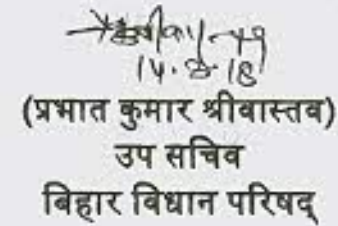 14.8.18
(प्रभात कुमार श्रीबास्तव)
उप सचिव
बिहार बिधान परिषद्